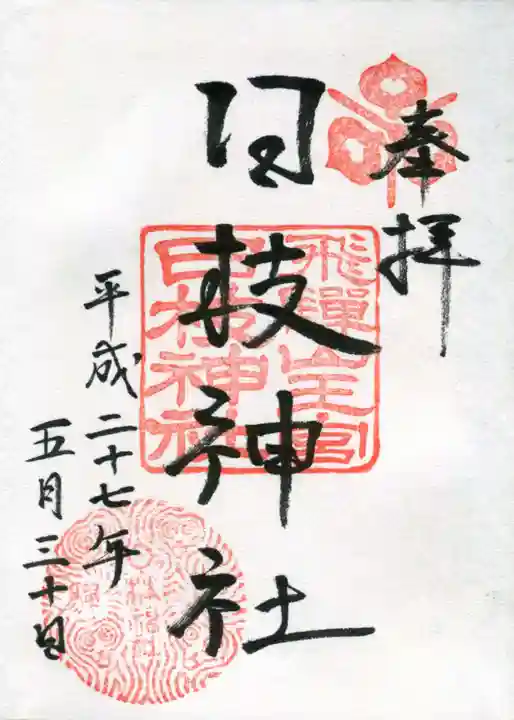 奉拝
飛騨山王宮
日枝神社
日枝神社
平成二十七年
五月三十日